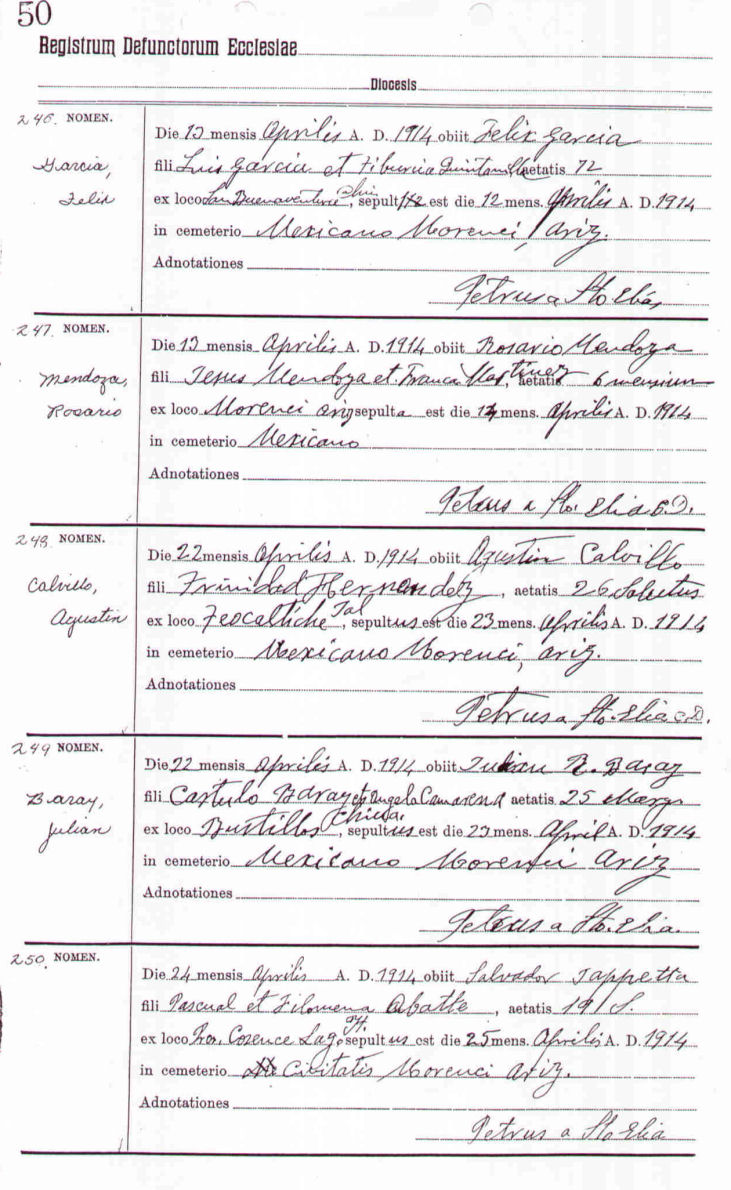 50
Registrum Defunctorum Ecclesiae
Diocesis
246. NOMEN.
Garcia,
Felix
Die 13 mensis Aprilis A. D. 1914 obiit Felix Garcia
fili Luis Garcia et Tiburcia Quintanilla aetatis 72
ex loco San Buenaventura Chih, sepult est die 12 mens. Aprilis A. D. 1914
in cemeterio Mexicano Morenci, Ariz.
Adnotationes
Petrus a Sto. Elia,
247. NOMEN.
Mendoza,
Rosario
Die 13 mensis Aprilis A. D. 1914 obiit Rosario Mendoza
fili Jesus Mendoza et Franca Martinez, aetatis 6 mensium
ex loco Morenci Ariz sepulta est die mens. Aprilis A. D. 1914
in cemeterio Mexicano
Adnotationes
Petrus a Sto. Elia C.D.
248. NOMEN.
Calvillo,
Agustin
Die 22 mensis Aprilis A. D. 1914 obiit Agustin Calvillo
fili Trinidad Hernandez, aetatis 26 Solutus
ex loco Teocaltiche Jal, sepultus est die 23 mens. Aprilis A. D. 1914
in cemeterio Mexicano Morenci, Ariz.
Adnotationes
Petrus a Sto. Elia C.D.
249 NOMEN.
Baray,
Julian
Die 22 mensis Aprilis A. D. 1914 obiit Julian R. Baray
fili Castulo Baray et Angela Camarena aetatis 25
ex loco Bustillos Chihua., sepultus est die 23 mens. April A. D. 1914
in cemeterio Mexicano Morenci Ariz
Adnotationes
Petrus a Sto. Elia.
250. NOMEN.
Die 24 mensis Aprilis A. D. 1914 obiit Salvador Tappetta
fili Pascual et Filomena Abatte, aetatis 19 S.
ex loco Cosence sepultus est die 25 mens. Aprilis A. D. 1914
in cemeterio Civitatis Morenci Ariz.
Adnotationes
Petrus a Sto Elia